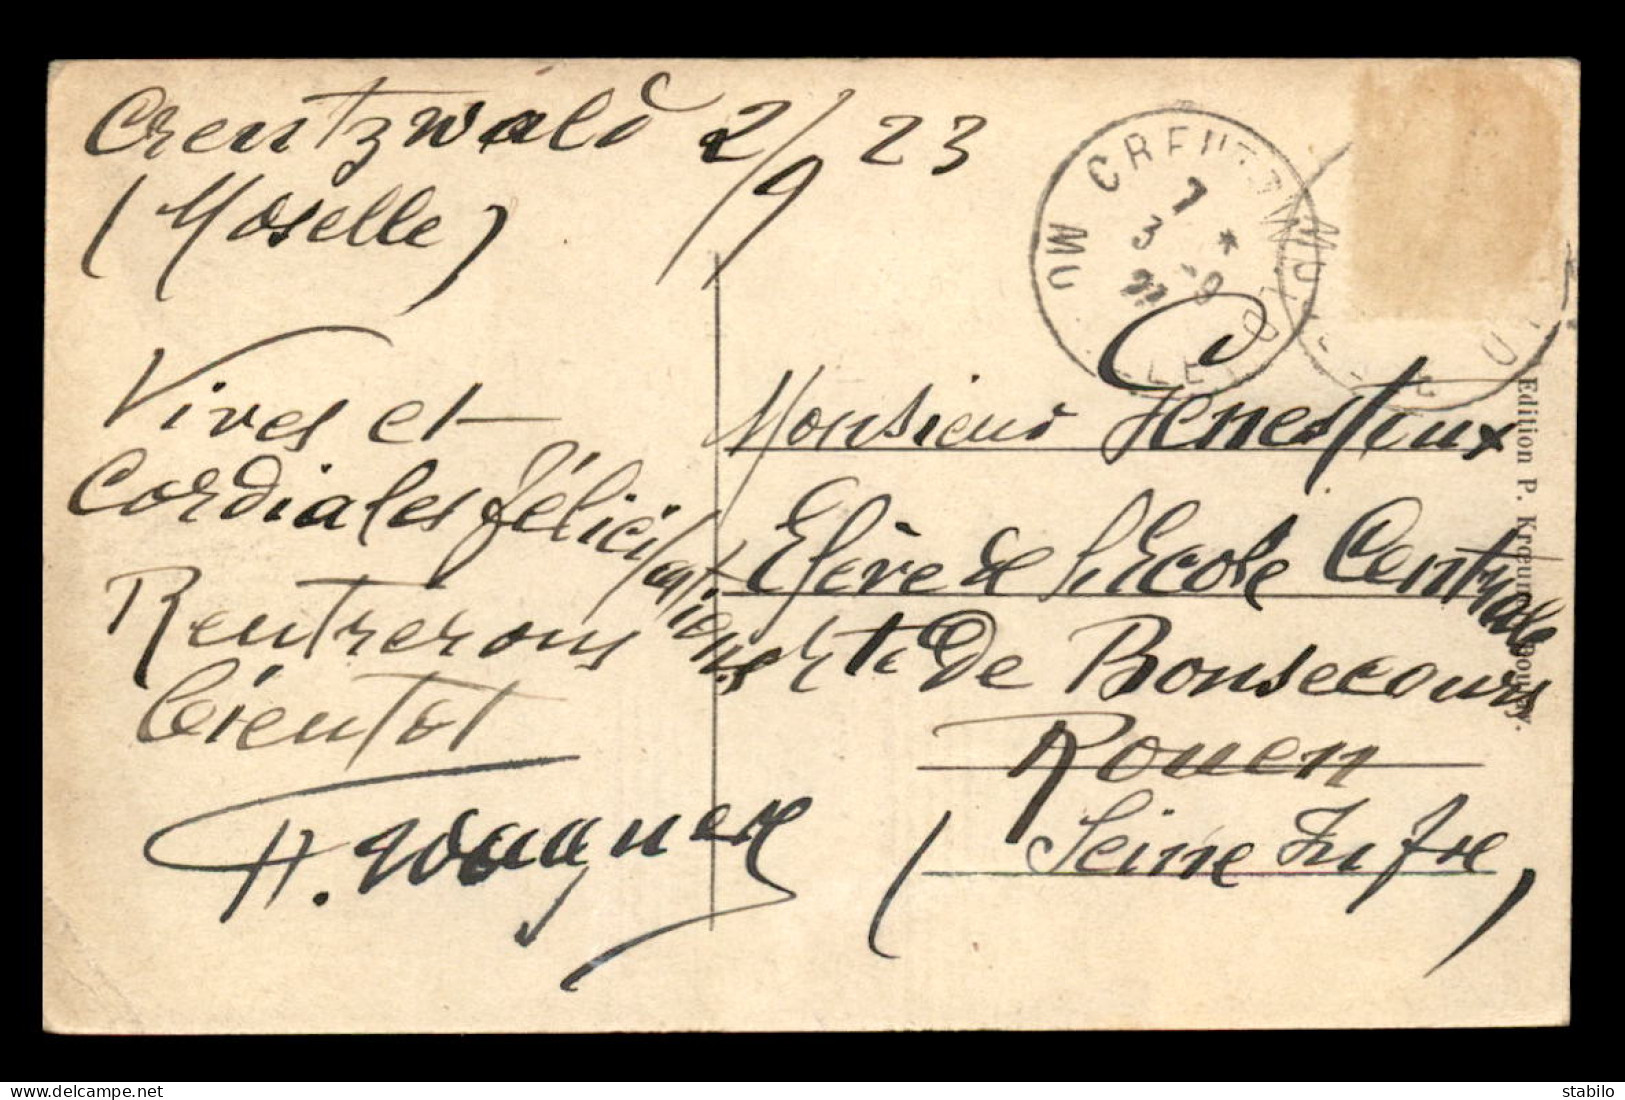 Creutzwald 2/9 23
(Moselle)
Vives et
Cordiales félicitations
Rentrerons
bientot
H. Wagner
CREUTZWALD
7 *
3 -9
MOSELLE
Monsieur Genestoux
Elève de l'Ecole Centrale
de Bonsecours
Rouen
(Seine Infre)
Edition P. Boulay.
© delcampe.net
stabilo